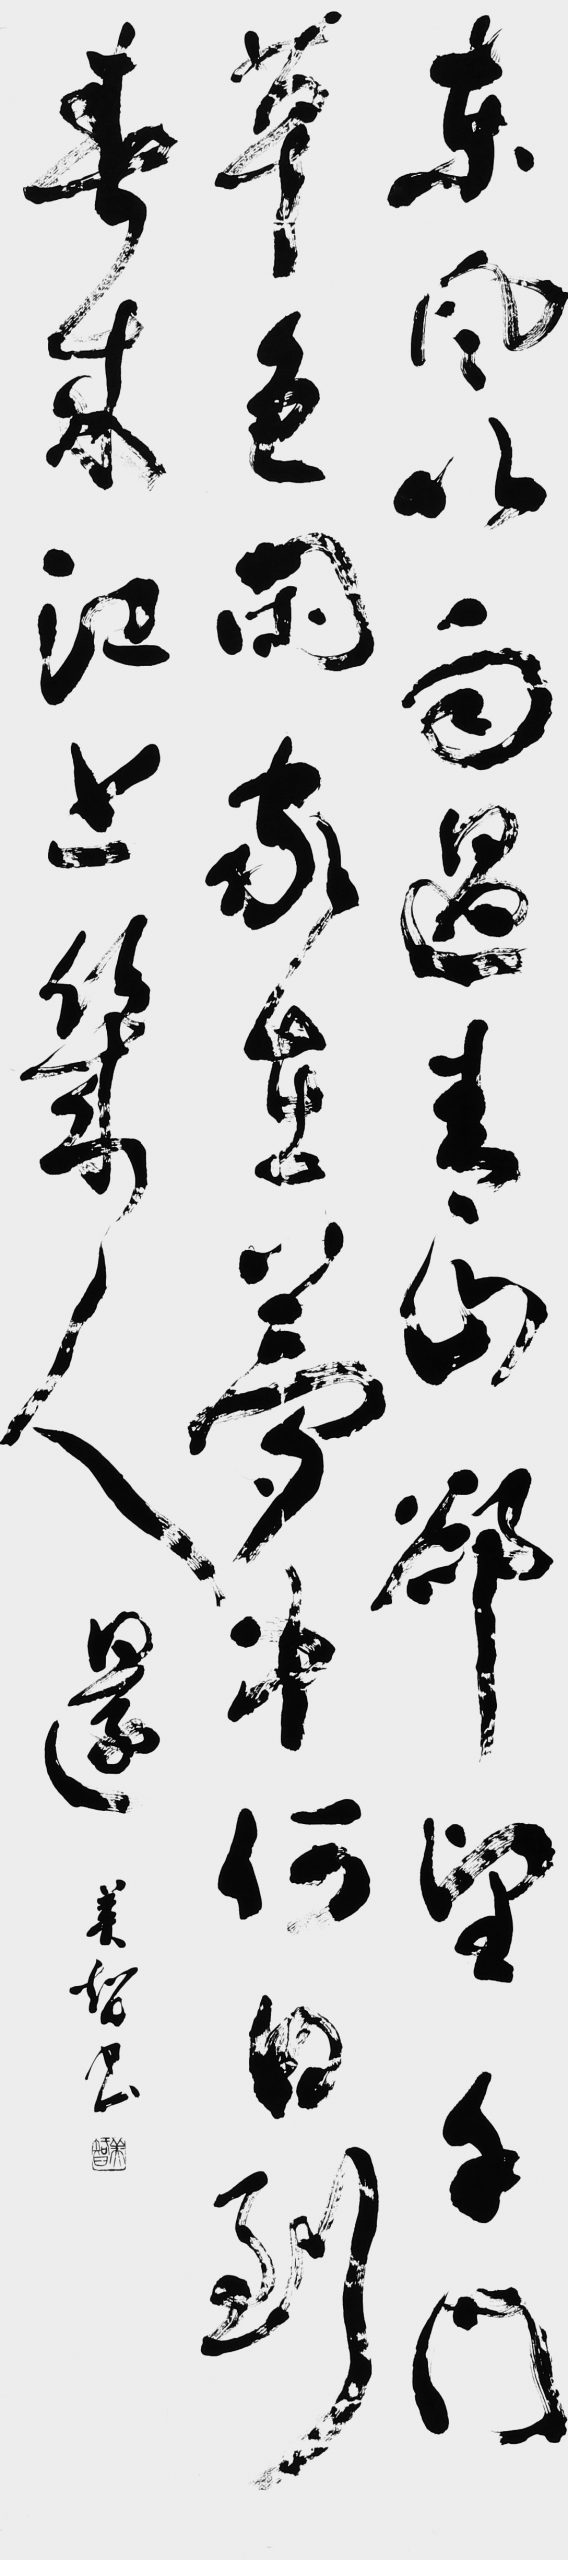 東風以向過青山卻望千門
草色閑家在夢中何日到
春來江上幾人還
美智書
美智